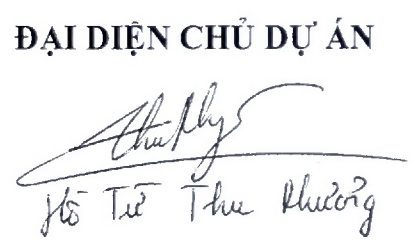 ĐẠI DIỆN CHỦ DỰ ÁN
Hồ Từ Thu Phương